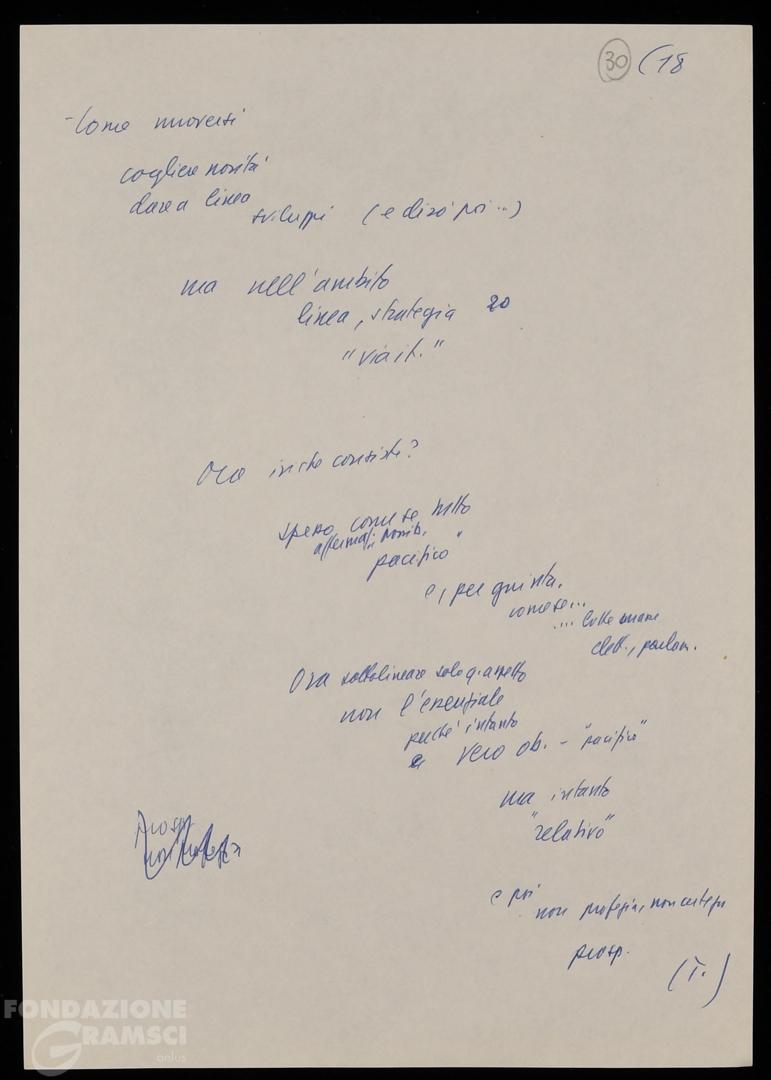 30 (18
- Come muoversi
cogliere novità
dare a linea
sviluppi (e dirò poi...)
ma nell'ambito
linea, strategia 20
"via it."
Ora in che consiste?
spesso come se tutto
affermati possib.
pacifico"
e, per giunta,
come se...
... lotte umane
elett., parlam.
Ora sottolineare solo q. aspetto
non l'essenziale
perché intanto
è vero ob. - "pacifico"
ma intanto
"relativo"
prosp
e poi
non profezia, non certezza
prosp.
(T.)
FONDAZIONE
GRAMSCI
onlus